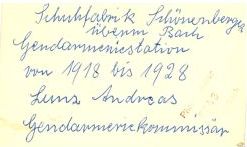 Schuhfabrik Schönenberger
überm Bach
Gendarmeriestation
von 1918 bis 1928
Lunz Andreas
Gendarmeriekommissär